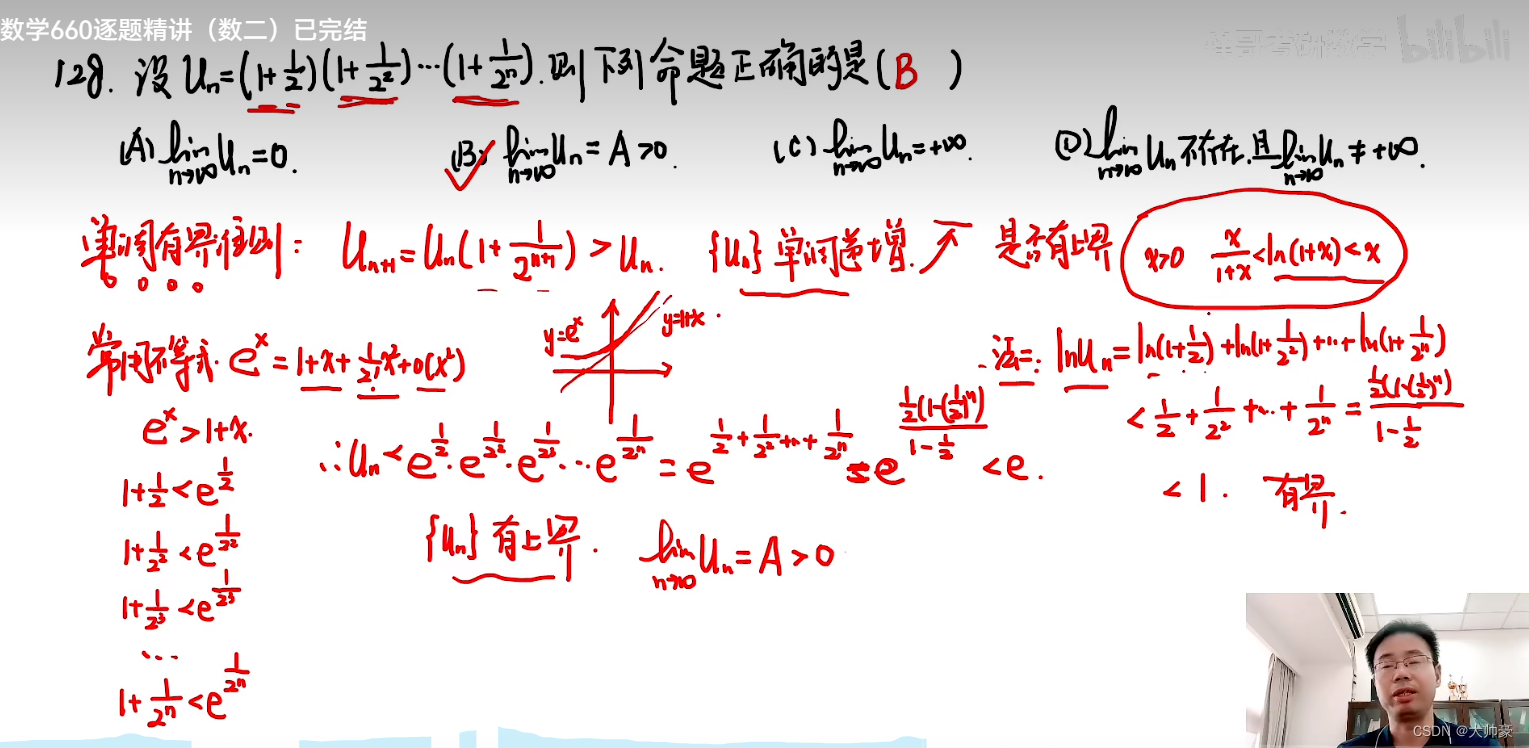 数学660逐题精讲（数二）已完结
bilibili
128. 设 Uₙ=(1+1/2)(1+1/2²)…(1+1/2ⁿ). 则下列命题正确的是( B )
(A) lim_{n→∞} Uₙ=0. (B) lim_{n→∞} Uₙ=A>0. (C) lim_{n→∞} Uₙ=+∞. (D) lim_{n→∞} Uₙ 不存在.且 lim_{n→∞} Uₙ≠+∞.
单调有界准则: Uₙ₊₁=Uₙ(1+1/2ⁿ⁺¹)>Uₙ. {Uₙ} 单调递增. 是否有上界 x>0 x/(1+x)<ln(1+x)<x
常用不等式. eˣ=1+x+1/2! x²+o(x²)
y=eˣ y=1+x.
法二: lnUₙ=ln(1+1/2)+ln(1+1/2²)+…+ln(1+1/2ⁿ)
<1/2+1/2²+…+1/2ⁿ=1/2(1-(1/2)ⁿ)/(1-1/2)
<1. 有界.
eˣ>1+x.
∴Uₙ<e^{1/2}·e^{1/2²}·e^{1/2³}…e^{1/2ⁿ}=e^{1/2+1/2²+…+1/2ⁿ}=e^{1/2(1-(1/2)ⁿ)/(1-1/2)}<e.
1+1/2<e^{1/2}
1+1/2²<e^{1/2²}
{Uₙ} 有上界. lim_{n→∞} Uₙ=A>0
1+1/2³<e^{1/2³}
…
1+1/2ⁿ<e^{1/2ⁿ}
CSDN @大帅豪